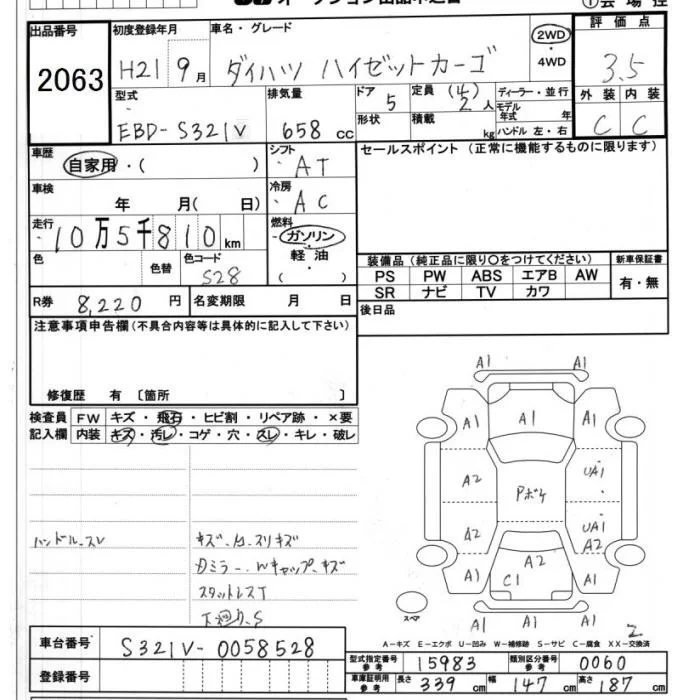 出品番号
2063
初度登録年月
H21 9月
車名・グレード
ダイハツ ハイゼットカーゴ
2WD
4WD
評価点
3.5
型式
EBD-S321V
排気量
658 cc
ドア
5
形状
定員 (4)
2人
積載
kg
ディーラー・並行
モデル年式 年
ハンドル 左・右
外装 内装
C C
車歴
自家用・( )
シフト
AT
セールスポイント (正常に機能するものに限ります)
車検
年 月( 日)
冷房
AC
走行
10万5千810km
燃料
ガソリン
軽油
( )
色
色替
色コード
S28
装備品 (純正品に限り○をつけてください)
PS PW ABS エアB AW
SR ナビ TV カワ
新車保証書
有・無
R券 8,220 円
名変期限 月 日
後日品
注意事項申告欄(不具合内容等は具体的に記入して下さい)
修復歴 有 [箇所 ]
検査員記入欄
FW キズ・飛石・ヒビ割・リペア跡・×要
内装 キズ・汚レ・コゲ・穴・スレ・キレ・破レ
ハンドル.スレ
スタットレスT
A1 A1
A1 A1 A1
A2 Pボケ UA1
A2 UA1
A2
A2
A1 C1 A1
スペア
A1 A1 A1
2
A-キズ E-エクボ U-凹み W-補修跡 S-サビ C-腐食 XX-交換済
車台番号 S321V-0058528
登録番号
型式指定番号 参考 15983
類別区分番号 参考 0060
車庫証明用 参考 長さ 339 cm 幅 147 cm 高さ 187 cm